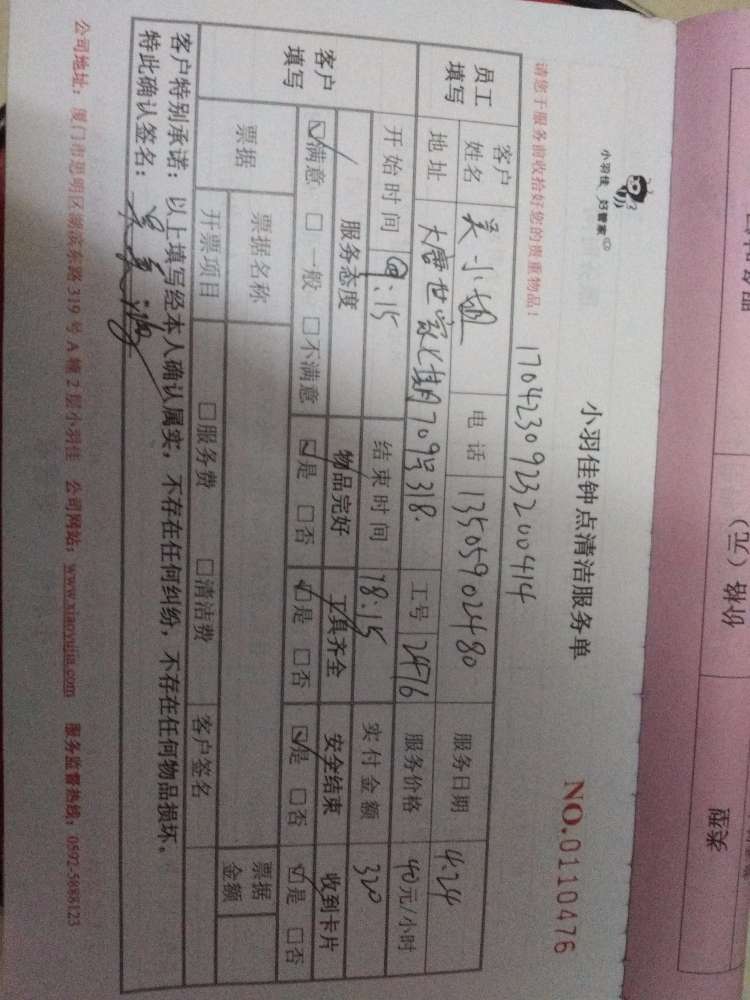 小羽佳 妇管家
小羽佳钟点清洁服务单
NO.0110476
请您于服务前收拾好您的贵重物品！
17042309232004 14
员工填写 客户姓名 吴小姐 电话 13505902480 服务日期 4.24
地址 大唐世家七期709号318. 工号 2476 服务价格 40元/小时
开始时间 :15 结束时间 18:15 实付金额 320
客户填写 服务态度 物品完好 工具齐全 安全结束 收到卡片
☑满意 □一般 □不满意 ☑是 □否 ☑是 □否 ☑是 □否 ☑是 □否
票据 票据名称 票据金额
开票项目 □服务费 □清洁费 客户签名
客户特别承诺：以上填写经本人确认属实，不存在任何纠纷，不存在任何物品损坏。
特此确认签名：吴
公司地址：厦门市思明区湖滨东路319号A幢2层小羽佳 公司网站：www.xiaoyujia.com 服务监督热线：0592-5888123
价格（元）